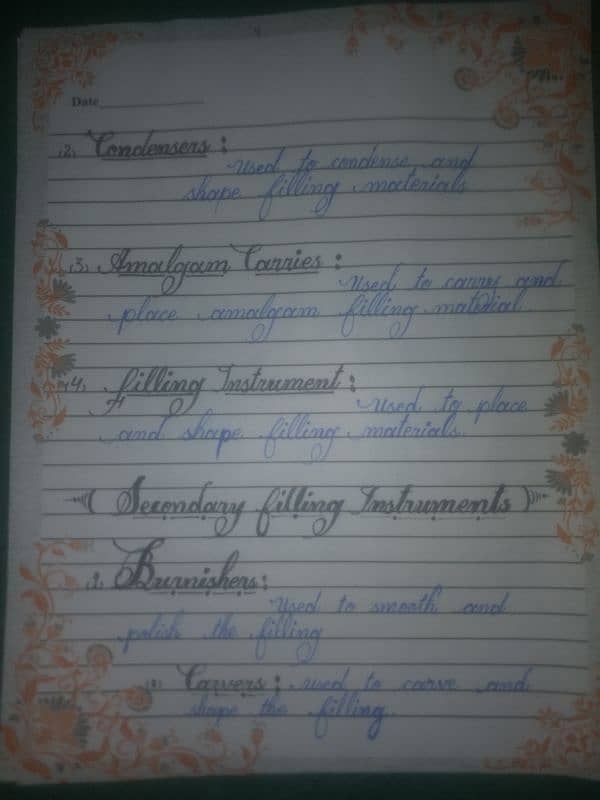 Date
2) Condensers :
used to condense and
shape filling materials
3) Amalgam Carries :
used to carry and
place amalgam filling material
4) filling Instrument :
used to place
and shape filling materials.
( Secondary filling Instruments )
1) Burnishers :
Used to smooth and
polish the filling
Carvers : used to carve and
shape the filling.